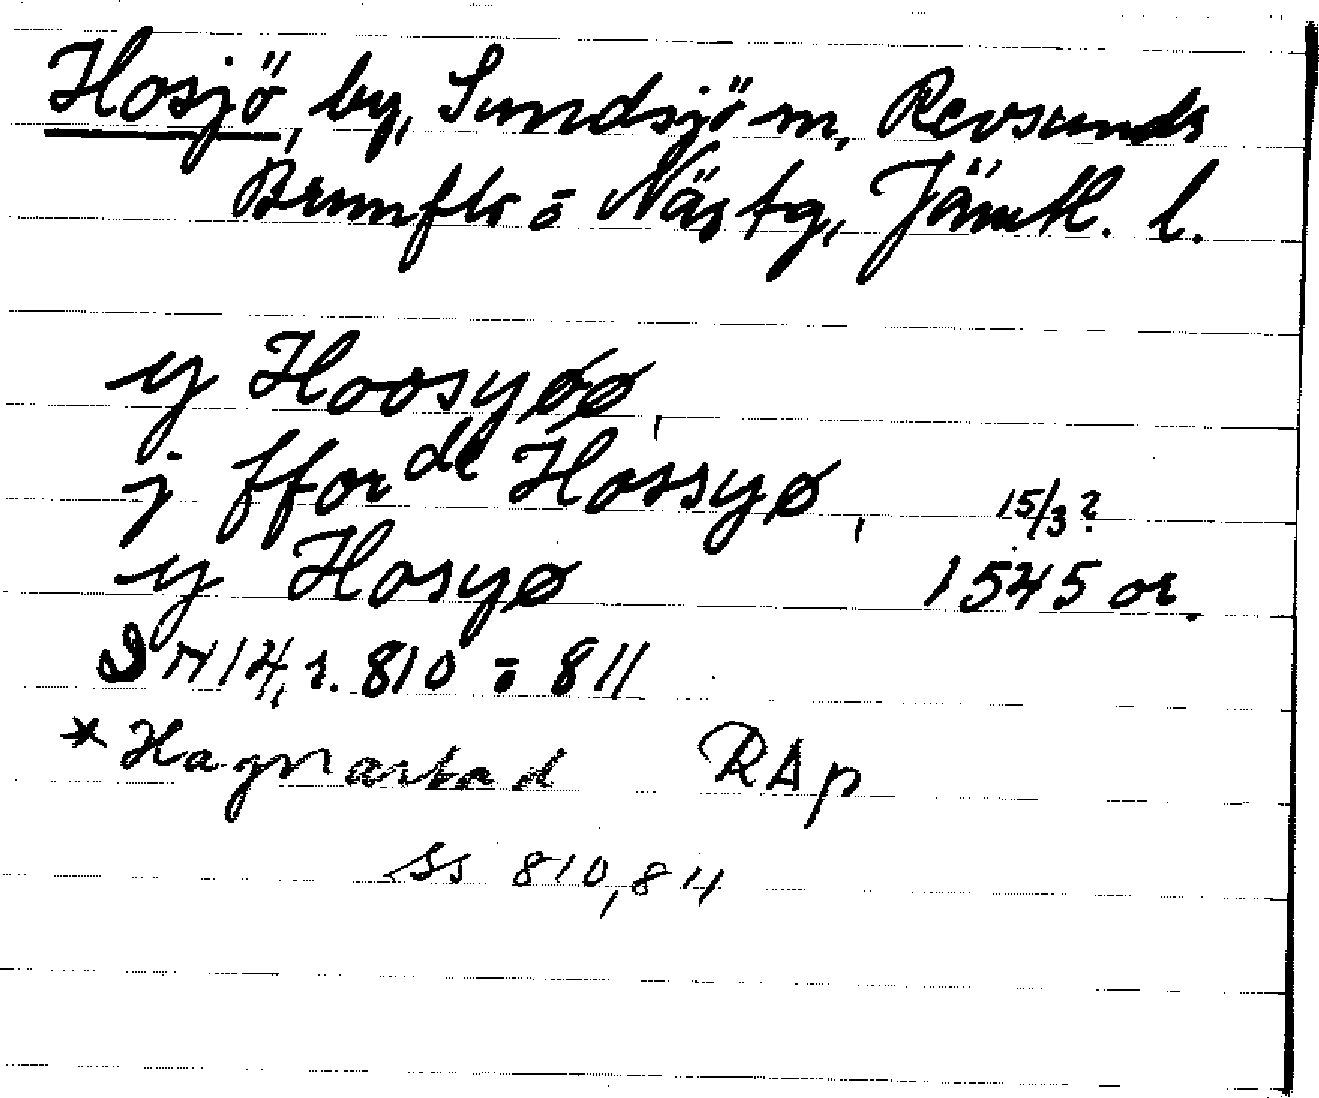 Hosjö, by, Sundsjö sn, Revsunds
Brunflo o Näs tg, Jämtl. l.
y Hoosyøø,
j fforde Hossyø, 15/3?
y Hosyø 1545 or.
DN 14, s. 810 o 811
* Hagnarstad RAp
ss 810, 811